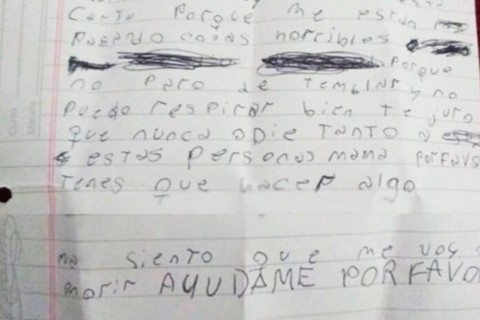 Porque me están
Pasando cosas horribles
Porque
no Paro de temblar y no
Puedo respirar bien te juro
Que nunca odie TANTO a
estas Personas mama PorFAV
Tenes Que hacer algo
siento que me voy
morir AYUDAME PORFAVO